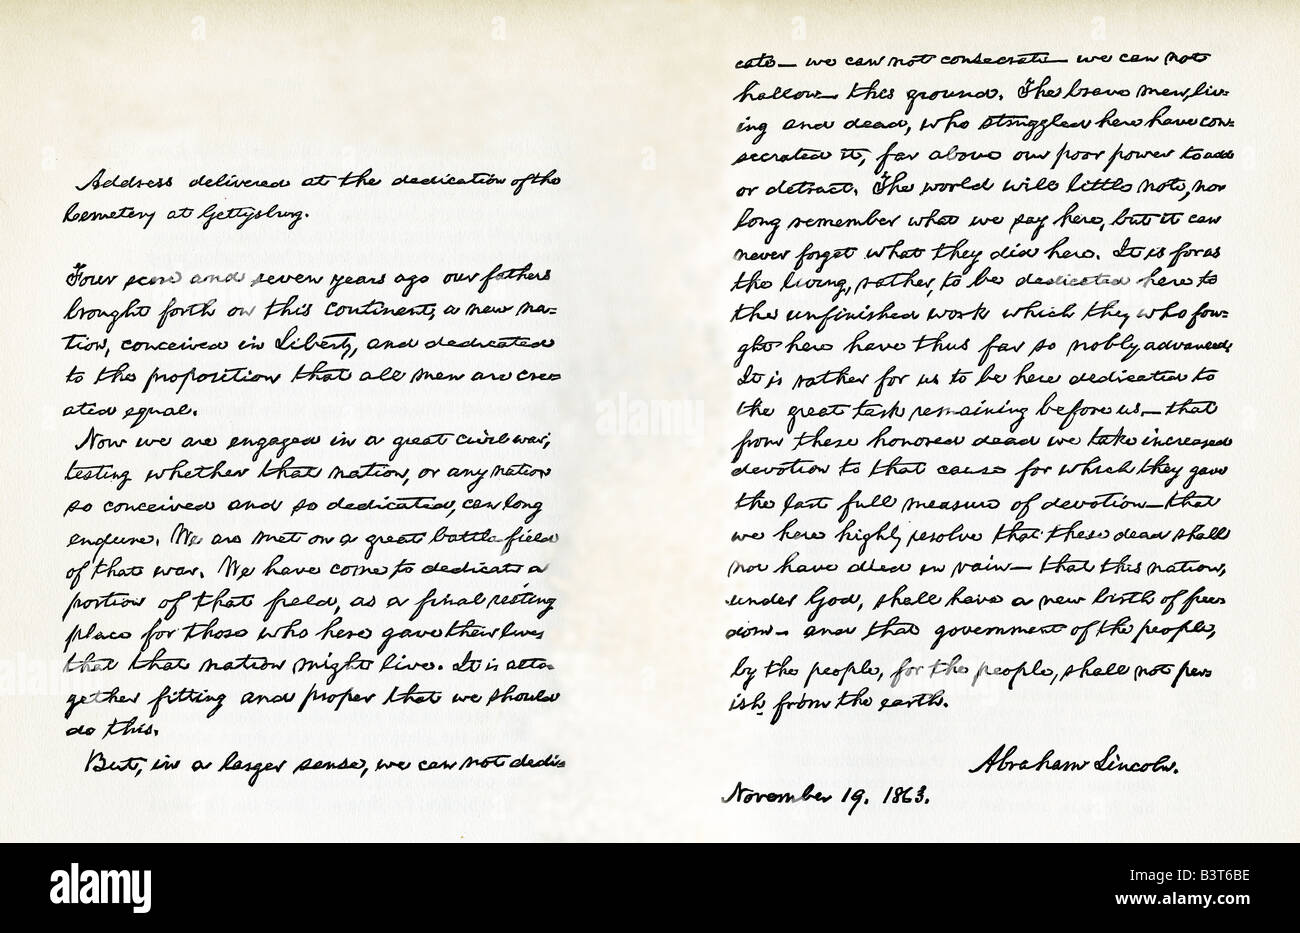 Address delivered at the dedication of the
Cemetery at Gettysburg.
Four score and seven years ago our fathers
brought forth on this continent, a new na-
tion, conceived in Liberty, and dedicated
to the proposition that all men are cre-
ated equal.
Now we are engaged in a great civil war,
testing whether that nation, or any nation
so conceived and so dedicated, can long
endure. We are met on a great battle-field
of that war. We have come to dedicate a
portion of that field, as a final resting
place for those who here gave their lives
that that nation might live. It is alto-
gether fitting and proper that we should
do this.
But, in a larger sense, we can not dedi-
cate— we can not consecrate— we can not
hallow— this ground. The brave men, liv-
ing and dead, who struggled here have con-
secrated it, far above our poor power to add
or detract. The world will little note, nor
long remember what we say here, but it can
never forget what they did here. It is for us
the living, rather, to be dedicated here to
the unfinished work which they who fou-
ght here have thus far so nobly advanced.
It is rather for us to be here dedicated to
the great task remaining before us— that
from these honored dead we take increased
devotion to that cause for which they gave
the last full measure of devotion— that
we here highly resolve that these dead shall
not have died in vain— that this nation,
under God, shall have a new birth of free-
dom— and that government of the people,
by the people, for the people, shall not per-
ish from the earth.
Abraham Lincoln.
November 19. 1863.
alamy
alamy
Image ID: B3T6BE
www.alamy.com